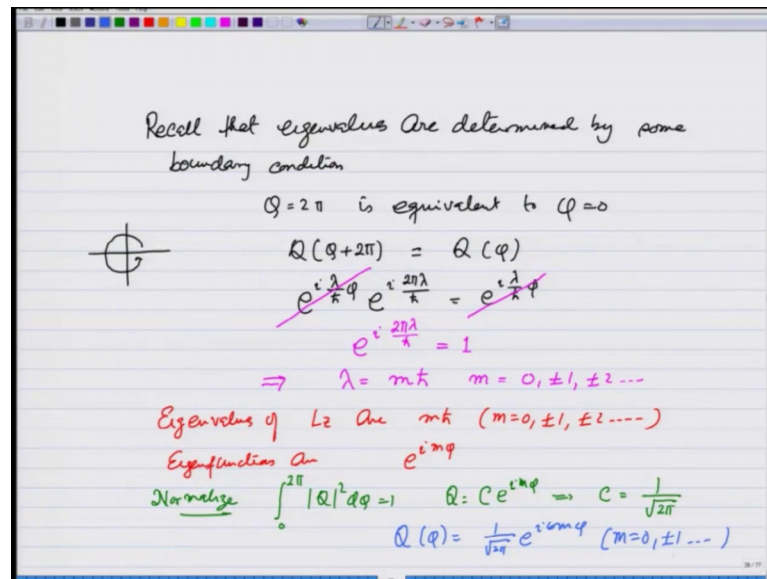 Recall that eigenvalues are determined by some
boundary condition
φ = 2π is equivalent to φ = 0
Q(φ+2π) = Q(φ)
e^{i λ/ħ φ} e^{i 2πλ/ħ} = e^{i λ/ħ φ}
e^{i 2πλ/ħ} = 1
⇒ λ = mħ m = 0, ±1, ±2 ---
Eigenvalues of Lz are mħ (m=0, ±1, ±2 ----)
Eigenfunctions are e^{imφ}
Normalize ∫_0^{2π} |Q|² dφ = 1 Q = C e^{imφ} ⇒ C = 1/√2π
Q(φ) = 1/√2π e^{imφ} (m=0, ±1 ---)